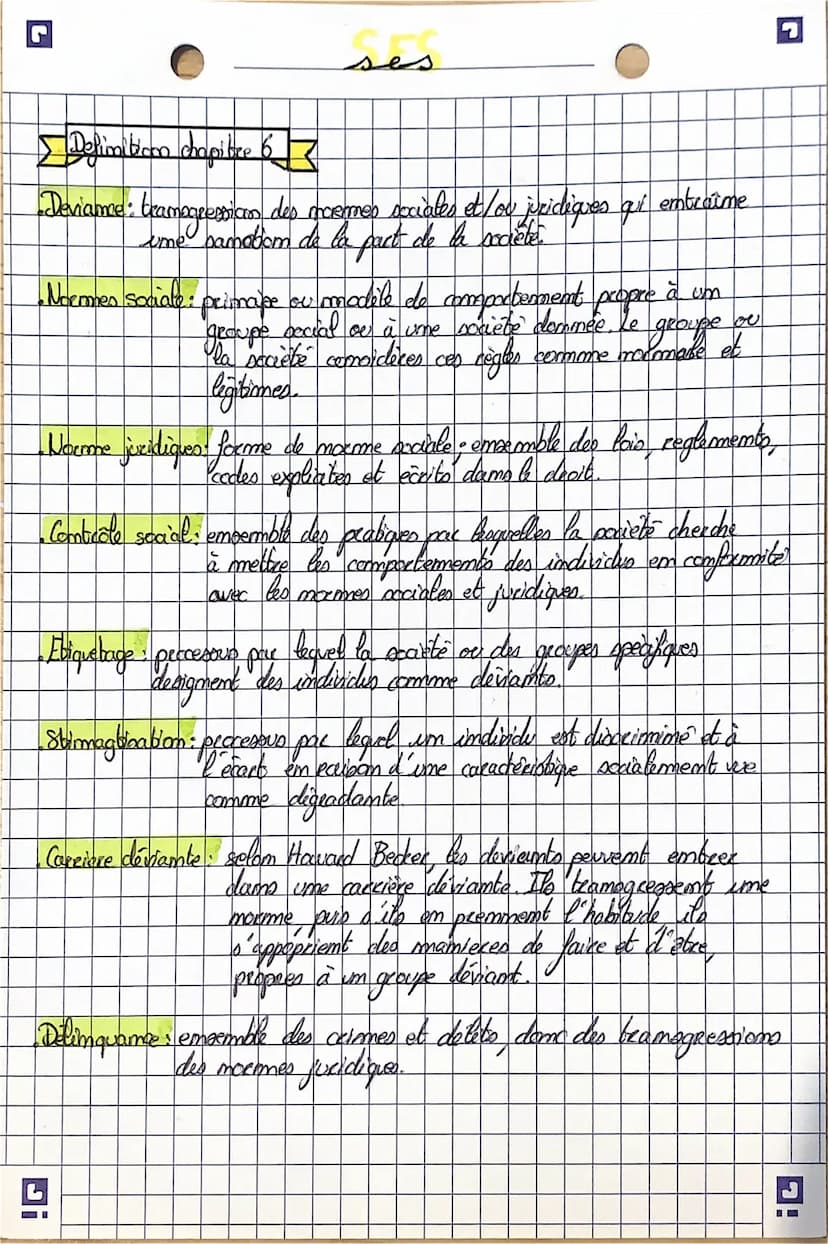 SES
ses
Definition chapitre 6
. Deviance : transgression des normes sociales et/ou juridiques qui entraîne
une sanction de la part de la société.
. Normes sociale : principe ou modèle de comportement propre à un
groupe social ou à une société donnée. Le groupe ou
la société considères ces règles comme normale et
légitimes.
. Norme juridiques : forme de norme sociale ; ensemble des lois, reglements,
codes explicites et écrits dans le droit.
. Contrôle social : ensemble des pratiques par lesquelles la société cherche
à mettre les comportements des individus en conformité
avec les normes sociales et juridiques.
. Etiquetage : processus par lequel la société ou des groupes spécifiques
designent des individus comme déviants.
. Stimagtisation : processus par lequel un individu est discriminé et à
l'écart en raison d'une caractéristique socialement vue
comme dégradante.
. Carriere déviante : selon Howard Becker, les deviants peuvent entrer
dans une carrière déviante. Ils transgressent une
norme, puis s'ils en prennent l'habitude ils
s'approprient des manieres de faire et d'être,
propres à un groupe déviant.
. Délinquance : ensemble des crimes et délits, donc des transgressions
des normes juridiques.